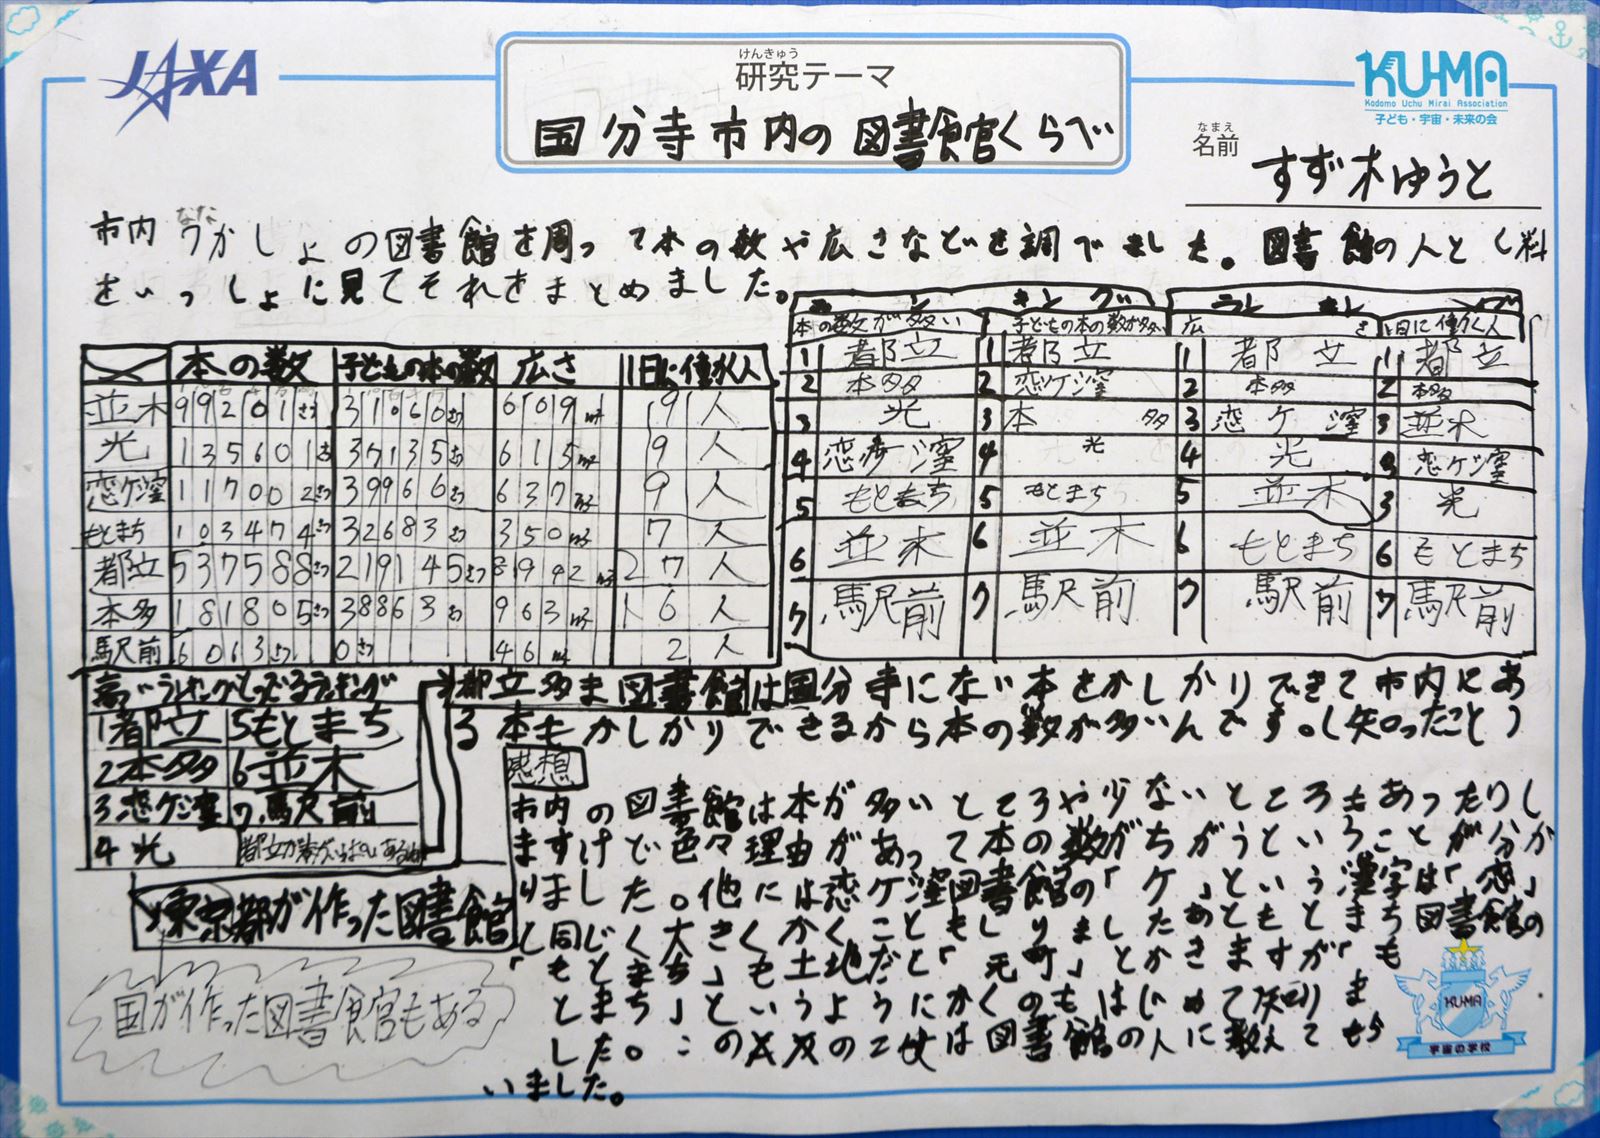 JAXA
けんきゅう
研究テーマ
国分寺市内の図書館くらべ
KU-MA
Kodomo Uchu Mirai Association
子ども・宇宙・未来の会
なまえ
名前
すず木ゆうと
市内7かしょの図書館を周って本の数や広さなどを調べました。図書館の人としりょう
をいっしょに見てそれをまとめました。
本の数 子どもの本の数 広さ 1日に働く人
並木 99201さつ 31060さつ 609㎡ 9人
光 135601さつ 35135さつ 615㎡ 9人
恋ケ窪 117002さつ 39966さつ 637㎡ 9人
もとまち 103474さつ 32683さつ 350㎡ 7人
都立 537588さつ 219145さつ 8992㎡ 27人
本多 181805さつ 38863さつ 963㎡ 16人
駅前 6063さつ 0さつ 46㎡ 2人
本の数が多い 子どもの本の数が多い 広さ 1日に働く人
1 都立 1 都立 1 都立 1 都立
2 本多 2 恋ケ窪 2 本多 2 本多
3 光 3 本多 3 恋ケ窪 3 並木
4 恋ケ窪 4 光 4 光 3 恋ケ窪
5 もとまち 5 もとまち 5 並木 3 光
6 並木 6 並木 6 もとまち 6 もとまち
7 駅前 7 駅前 7 駅前 7 駅前
1都立 5もとまち
2本多 6並木
3恋ケ窪 7駅前
4光
東京都が作った図書館
国が作った図書館もある
都立多ま図書館は国分寺にない本をかしかりできて市内にあ
る本もかしかりできるから本の数が多いんです。(知ったこと)
感想
市内の図書館は本が多いところや少ないところもあったりし
ますけど色々理由があって本の数がちがうということが分か
りました。他には恋ケ窪図書館の「ケ」という漢字は「恋」
と同じく大きくかくこともしりましたあともとまち図書館の
「もとまち」も土地だと「元町」とかきますが「も
とまち」というようにかくのもはじめて知りま
した。この
は図書館の人に教えてもら
いました。
KU-MA
宇宙の学校